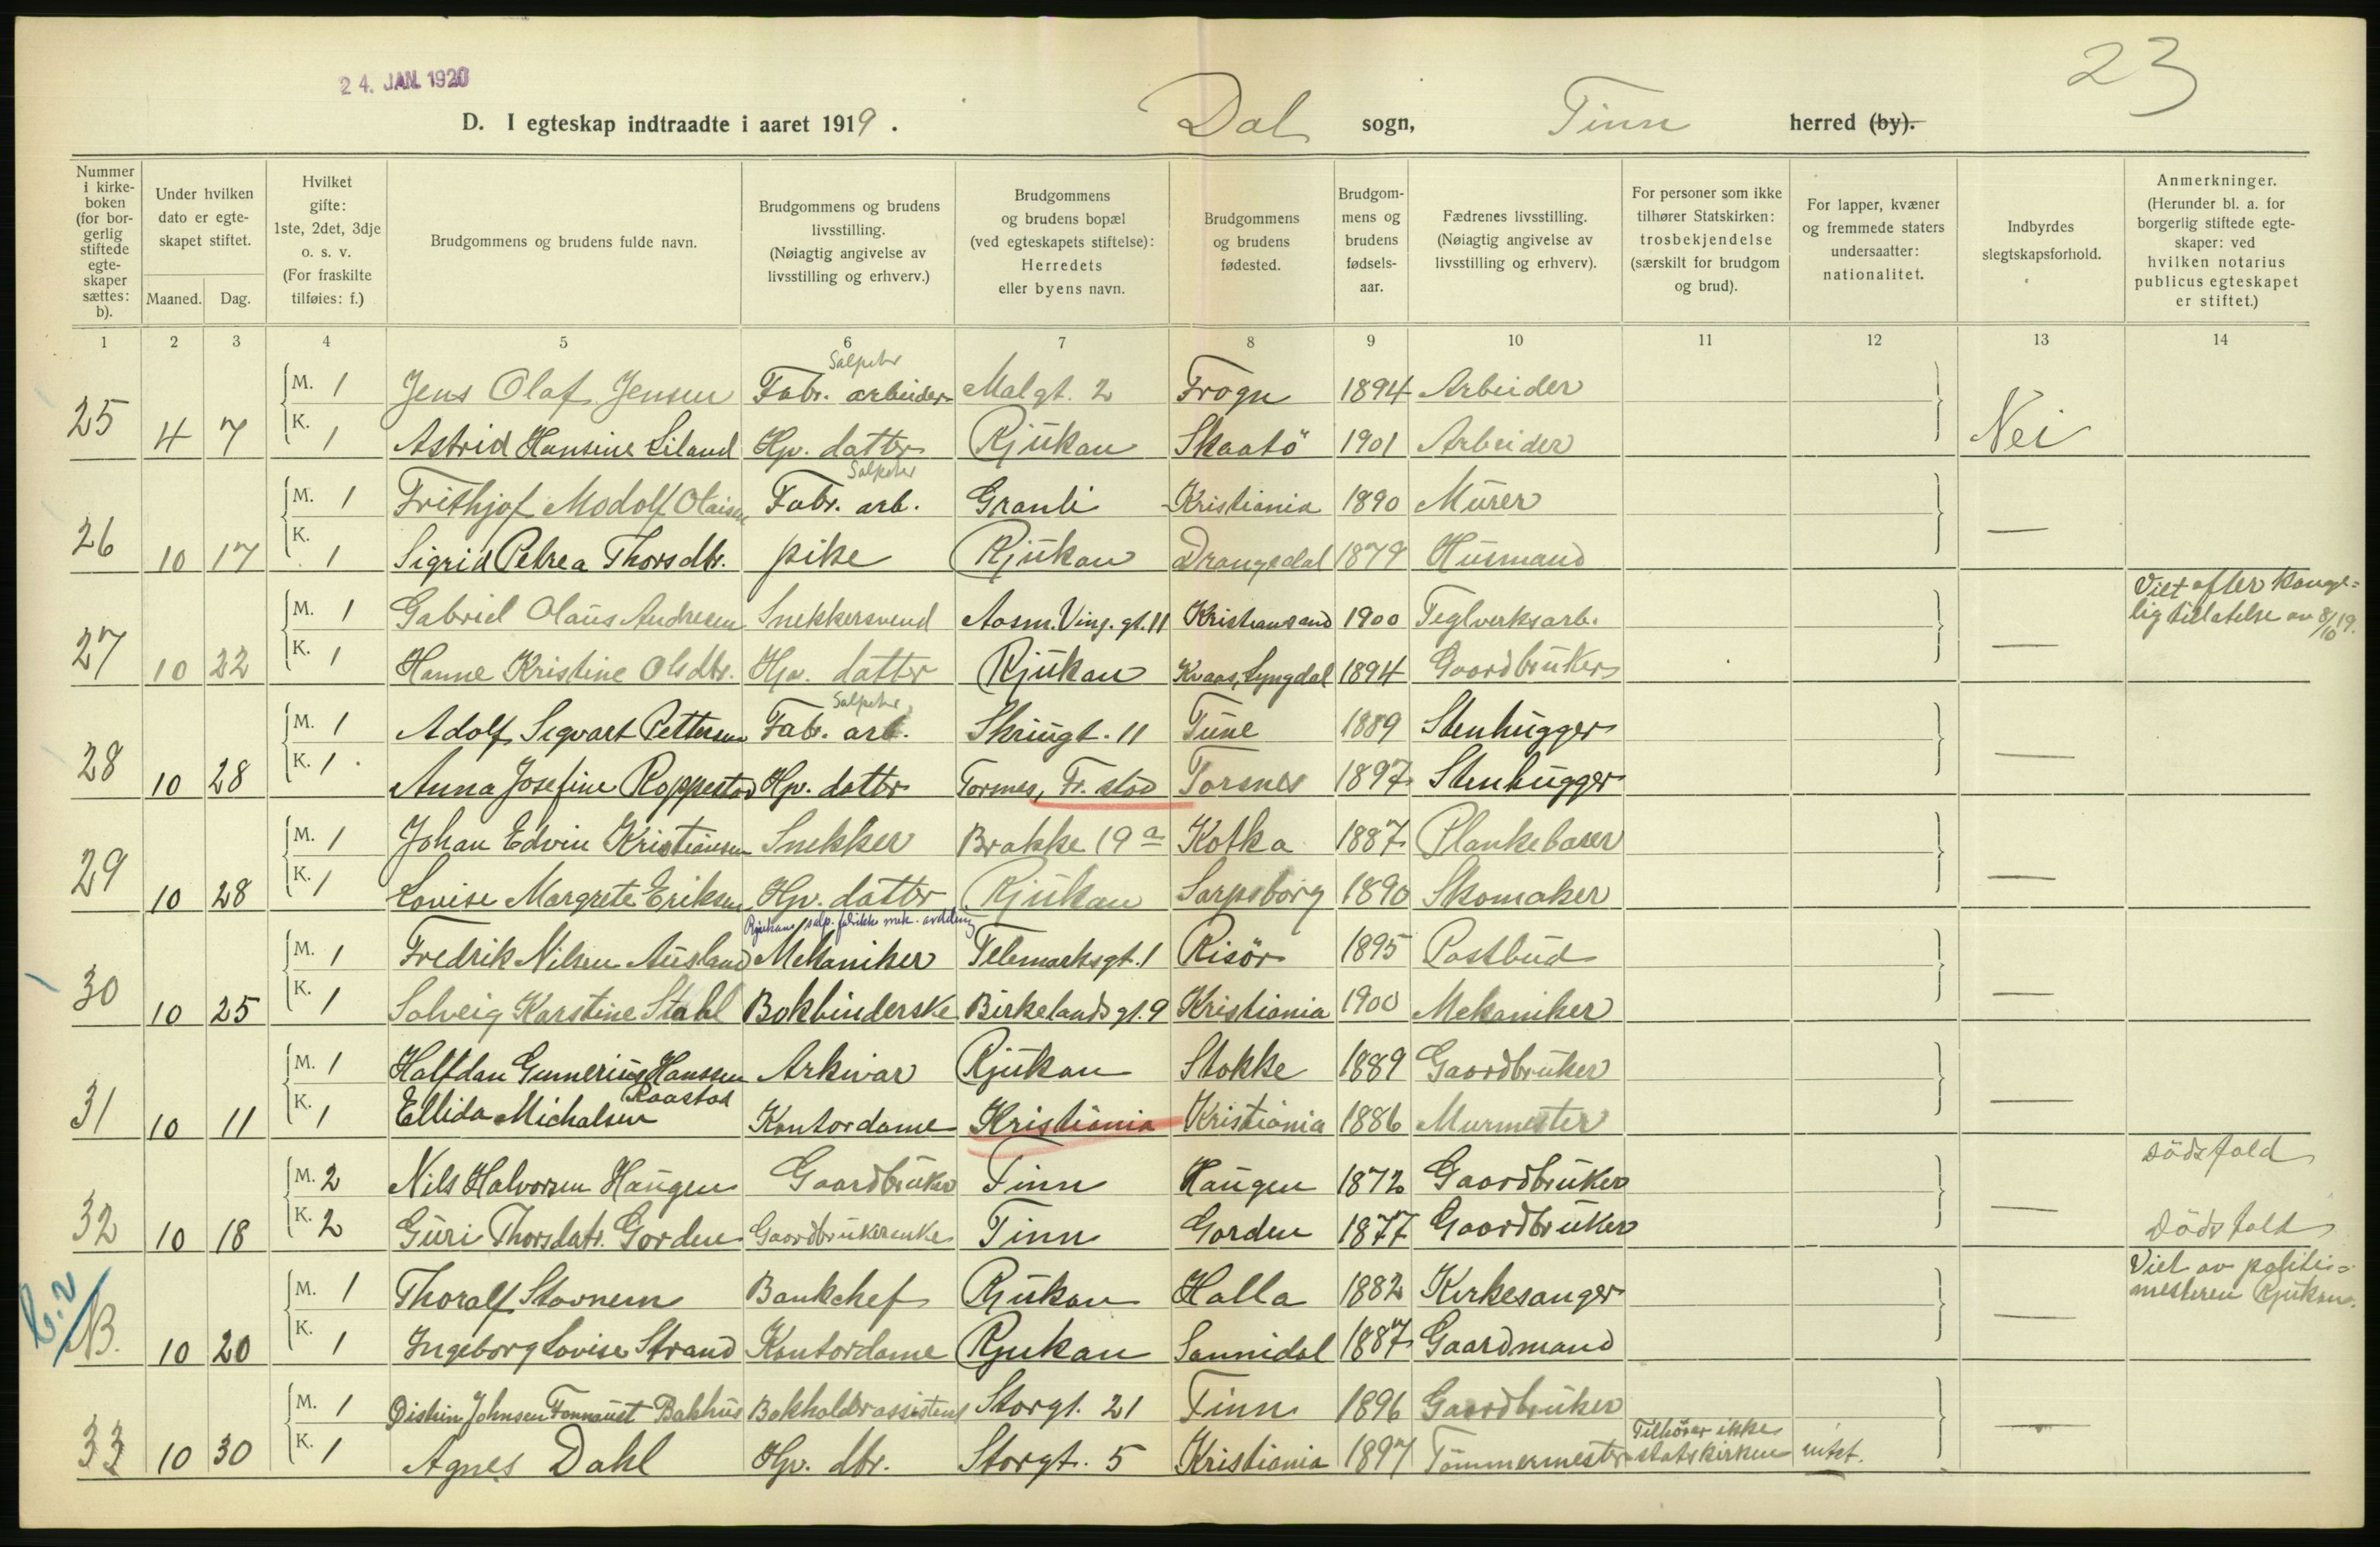 23
24. JAN. 1920
D. I egteskap indtraadte i aaret 1919. Dal sogn, Tinn herred (by).
Nummer i kirke-boken (for bor-gerlig stiftede egte-skaper sættes: b).
Under hvilken dato er egte-skapet stiftet.
Maaned. Dag.
Hvilket gifte: 1ste, 2det, 3dje o. s. v. (For fraskilte tilføies: f.)
Brudgommens og brudens fulde navn.
Brudgommens og brudens livsstilling. (Nøiagtig angivelse av livsstilling og erhverv.)
Brudgommens og brudens bopæl (ved egteskapets stiftelse): Herredets eller byens navn.
Brudgommens og brudens fødested.
Brudgom-mens og brudens fødsels-aar.
Fædrenes livsstilling. (Nøiagtig angivelse av livsstilling og erhverv).
For personer som ikke tilhører Statskirken: trosbekjendelse (særskilt for brudgom og brud).
For lapper, kvæner og fremmede staters undersaatter: nationalitet.
Indbyrdes slegtskapsforhold.
Anmerkninger. (Herunder bl. a. for borgerlig stiftede egte-skaper: ved hvilken notarius publicus egteskapet er stiftet.)
1 2 3 4 5 6 7 8 9 10 11 12 13 14
Salpeter
M. 1 Jens Olaf Jensen Fabr. arbeider Malgt. 2 Frogn 1894 Arbeider
25 4 7 K. 1 Astrid Hansine Liland Hp. datter Rjukan Skaatö 1901 Arbeider Nei
Salpeter
M. 1 Frithjof Modolf Olaisen Fabr. arb. Granli Kristiania 1890 Murer
26 10 17 K. 1 Sigrid Petrea Thorsdtr. pike Rjukan Drangedal 1879 Husmand —
M. 1 Gabriel Olaus Andresen Snekkersvend Aasm. Vinj. gt. 11 Kristiansand 1900 Teglverksarb. Viet efter konge-lig tillatelse av 8/10 19.
27 10 22 K. 1 Hanne Kristine Olsdtr. Hp. datter Rjukan Kvaas, Lyngdal 1894 Gaardbruker —
Salpeter
M. 1 Adolf Sigvart Pettersen Fabr. arb. Skriugt. 11 Tune 1889 Stenhugger
28 10 28 K. 1 Anna Josefine Roppestad Hp. datter Torsnes, Fr. stad Torsnes 1897 Stenhugger —
M. 1 Johan Edvin Kristiansen Snekker Brakke 19 a Kotka 1887 Plankebærer
29 10 28 K. 1 Lovise Margrete Eriksen Hp. datter Rjukan Sarpsborg 1890 Skomaker —
Rjukans salp. fabrikks mek. avdeling
M. 1 Fredrik Nilsen Ausland Mekaniker Telemarksgt. 1 Risör 1895 Postbud
30 10 25 K. 1 Solveig Karstine Stahl Bokbinderske Birkelands gt. 9 Kristiania 1900 Mekaniker —
M. 1 Halfdan Gunnerius Hanssen Raastad Arkivar Rjukan Stokke 1889 Gaardbruker
31 10 11 K. 1 Ellida Michalsen Kontordame Kristiania Kristiania 1886 Murmester —
M. 2 Nils Halvorsen Haugen Gaardbruker Tinn Haugen 1872 Gaardbruker Dödsfald
32 10 18 K. 2 Guri Thorsdatr. Gorden Gaardbrukerenke Tinn Gorden 1877 Gaardbruker — Dödsfald
M. 1 Thoralf Stavnem Bankchef Rjukan Halla 1882 Kirkesanger Viet av politi-mesteren Rjukan.
B. 10 20 K. 1 Ingeborg Lovise Strand Kontordame Rjukan Sannidal 1887 Gaardmand —
M. 1 Öistein Johnsen Fonnaust Bakhus Bokholderassistent Storgt. 21 Tinn 1896 Gaardbruker
33 10 30 K. 1 Agnes Dahl Hp. dtr. Storgt. 5 Kristiania 1897 Tömmermester Tilhører ikke statskirken —